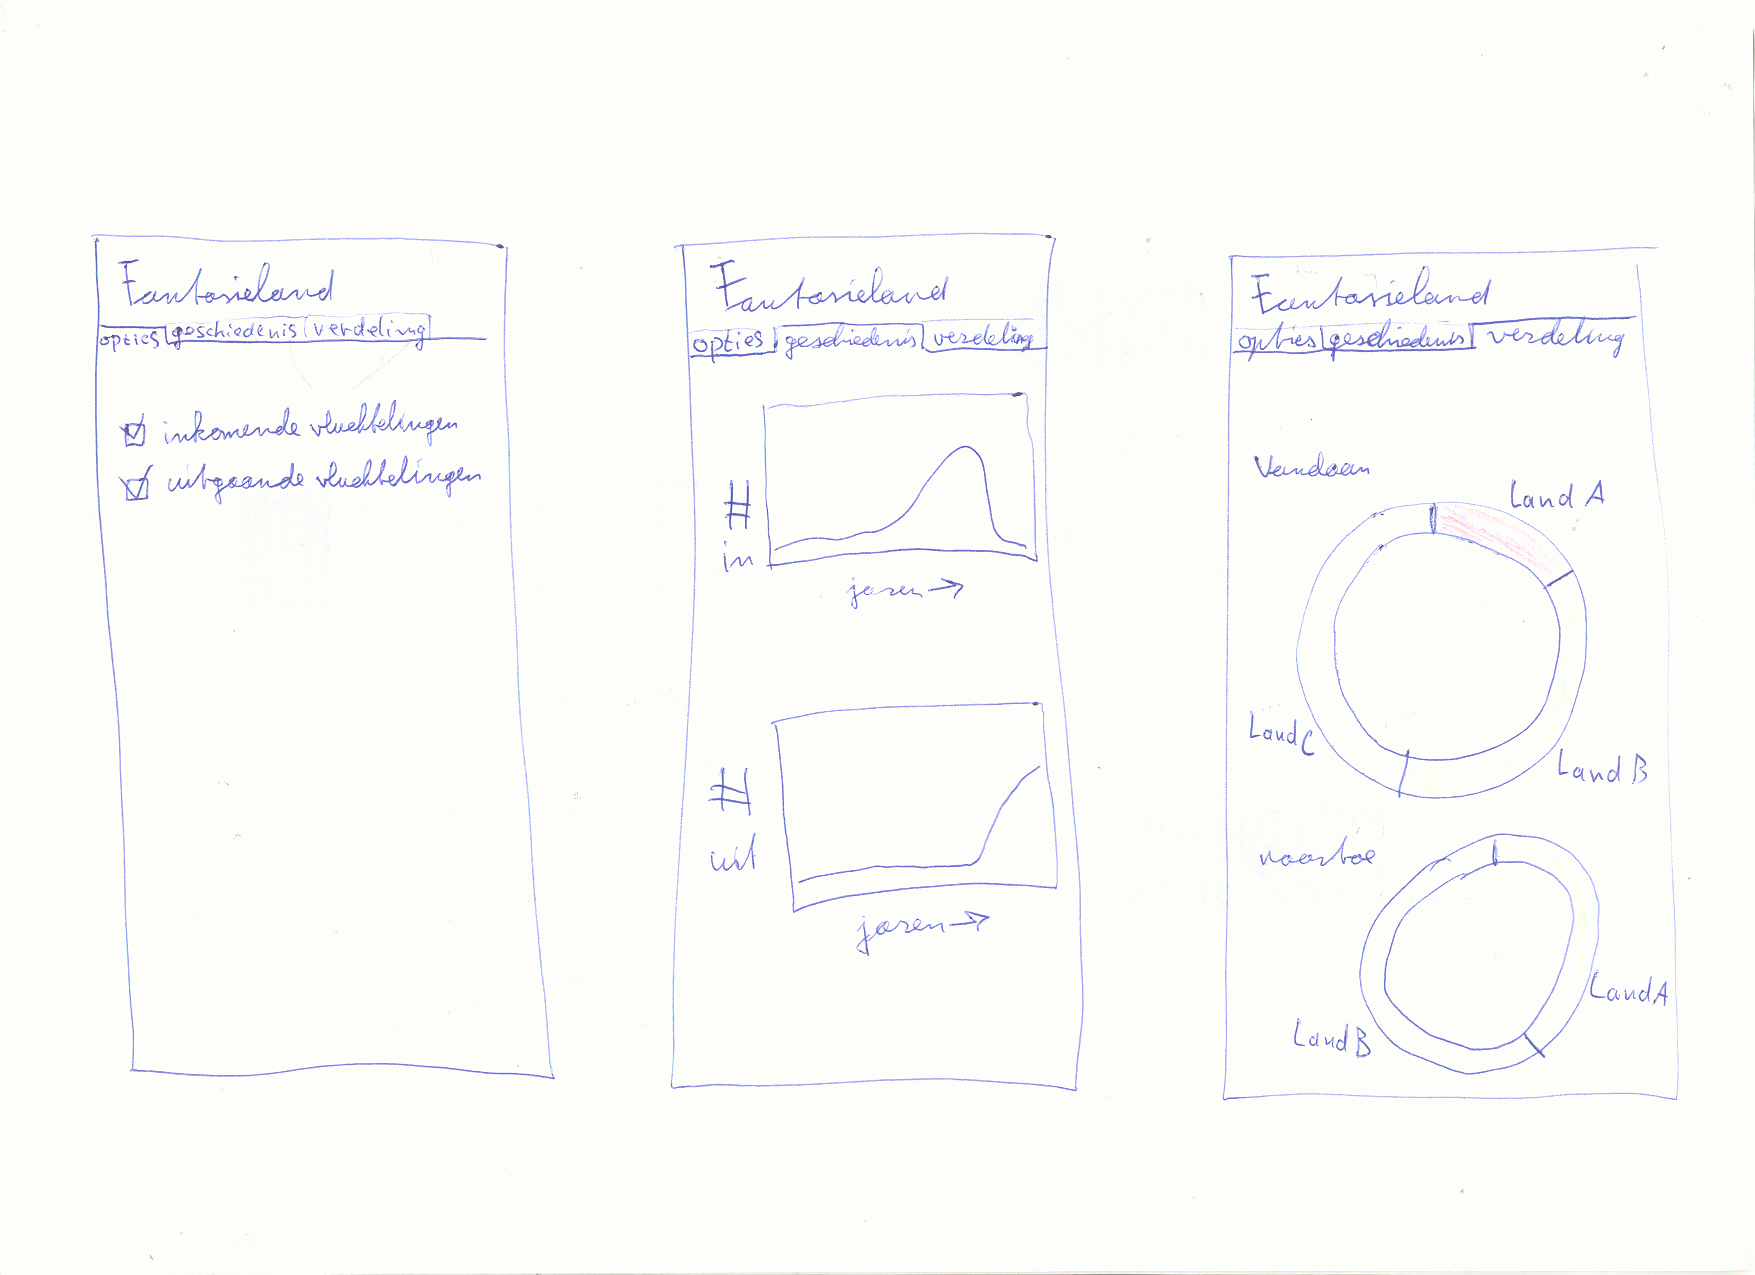 Fantasieland
opties geschiedenis verdeling
inkomende vluchtelingen
uitgaande vluchtelingen
Fantasieland
opties geschiedenis verdeling
#
in
jaren →
#
uit
jaren →
Fantasieland
opties geschiedenis verdeling
Vandaan
Land A
Land C
Land B
naartoe
Land A
Land B